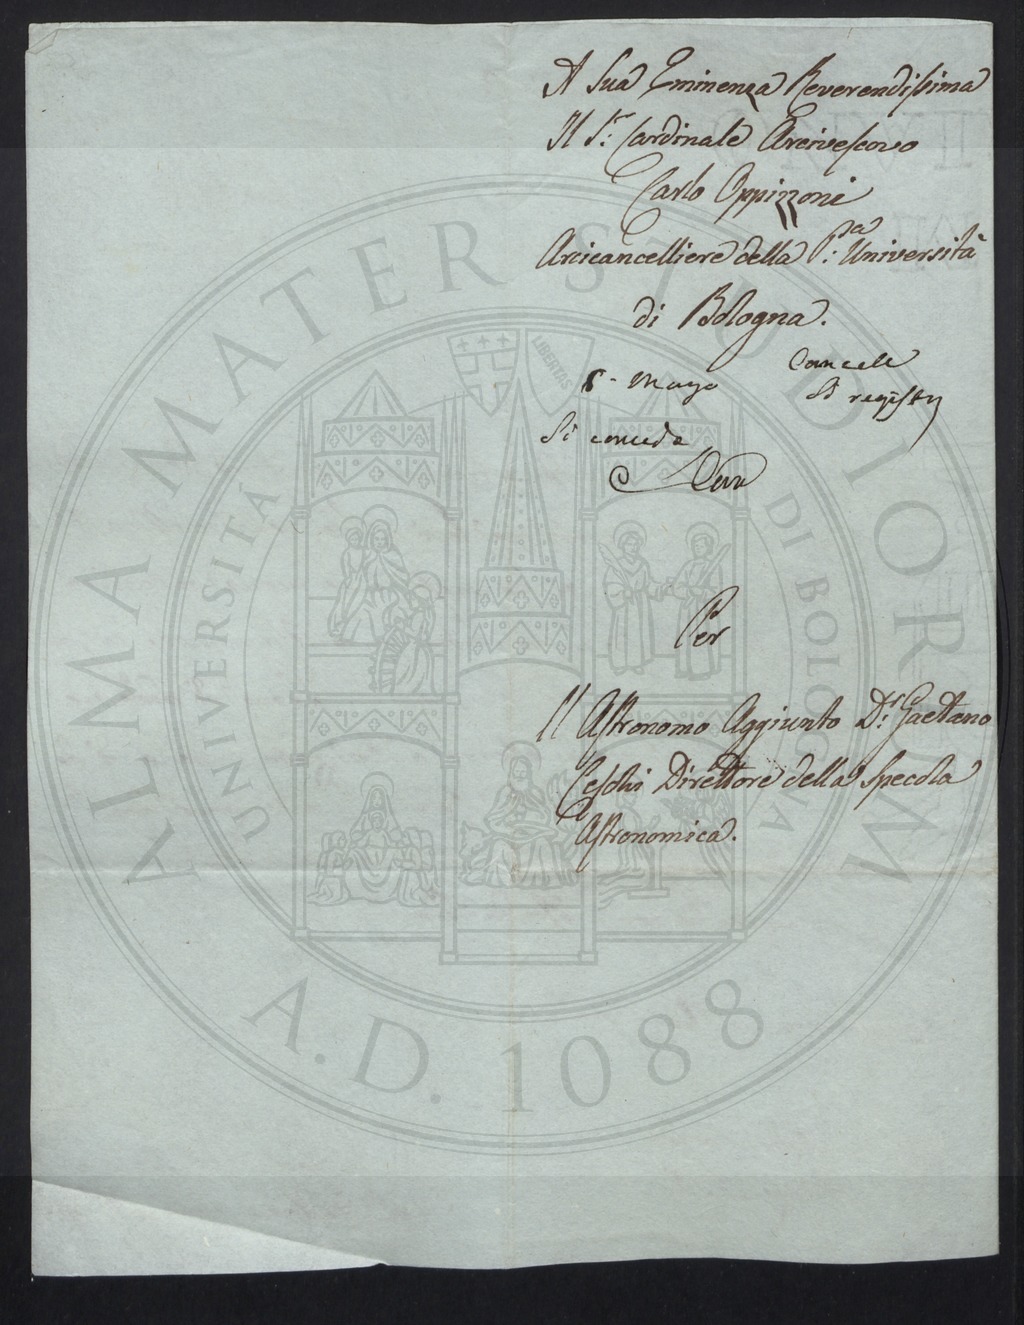 A Sua Eminenza Reverendissima
Il Sr. Cardinale Arcivescovo
Carlo Oppizzoni
Arcicancelliere della P.ca Università
di Bologna.
Cancell
Si registri
Si conceda
Per
Il Astronomo Aggiunto Dr. Gaetano
Ceschi Direttore della Specola
Astronomica.
ALMA MATER STUDIORUM
UNIVERSITÁ DI BOLOGNA
LIBERTAS
A.D. 1088